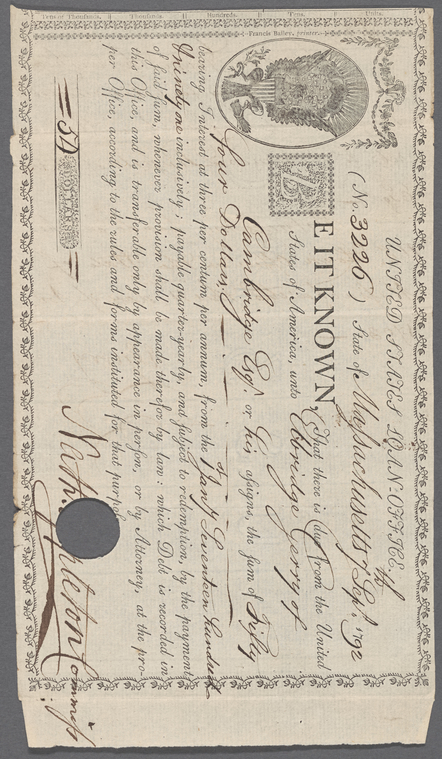 Tens of Thousands. Thousands. Hundreds. Tens. Units.
Francis Bailey, printer.
UNITED STATES LOAN-OFFICE,
(No. 3226) State of Massachusetts Sept. 1792
BE IT KNOWN, That there is due from the United
States of America, unto Elbridge Gerry of
Cambridge Esqr. or his assigns, the sum of Fifty
four Dollars,
bearing Interest at three per centum per annum, from the
ninety one inclusively; payable quarter-yearly, and subject to redemption, by the payment
of said sum, whenever provision shall be made therefor by law: which Debt is recorded in
this Office, and is transferable only by appearance in person, or by Attorney, at the pro-
per Office, according to the rules and forms instituted for that purpose.
54 DOLLARS
Nath. Appleton Commissr